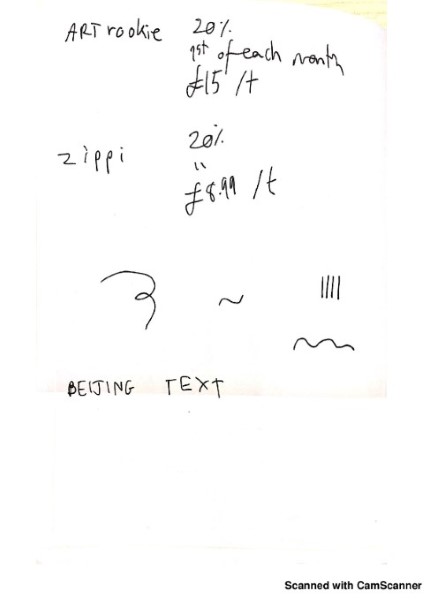 ARTrookie 20%
1st of each month
£15 /t
zippi 20%
"
£8.99 /t
~ ||||
BEIJING TEXT
Scanned with CamScanner